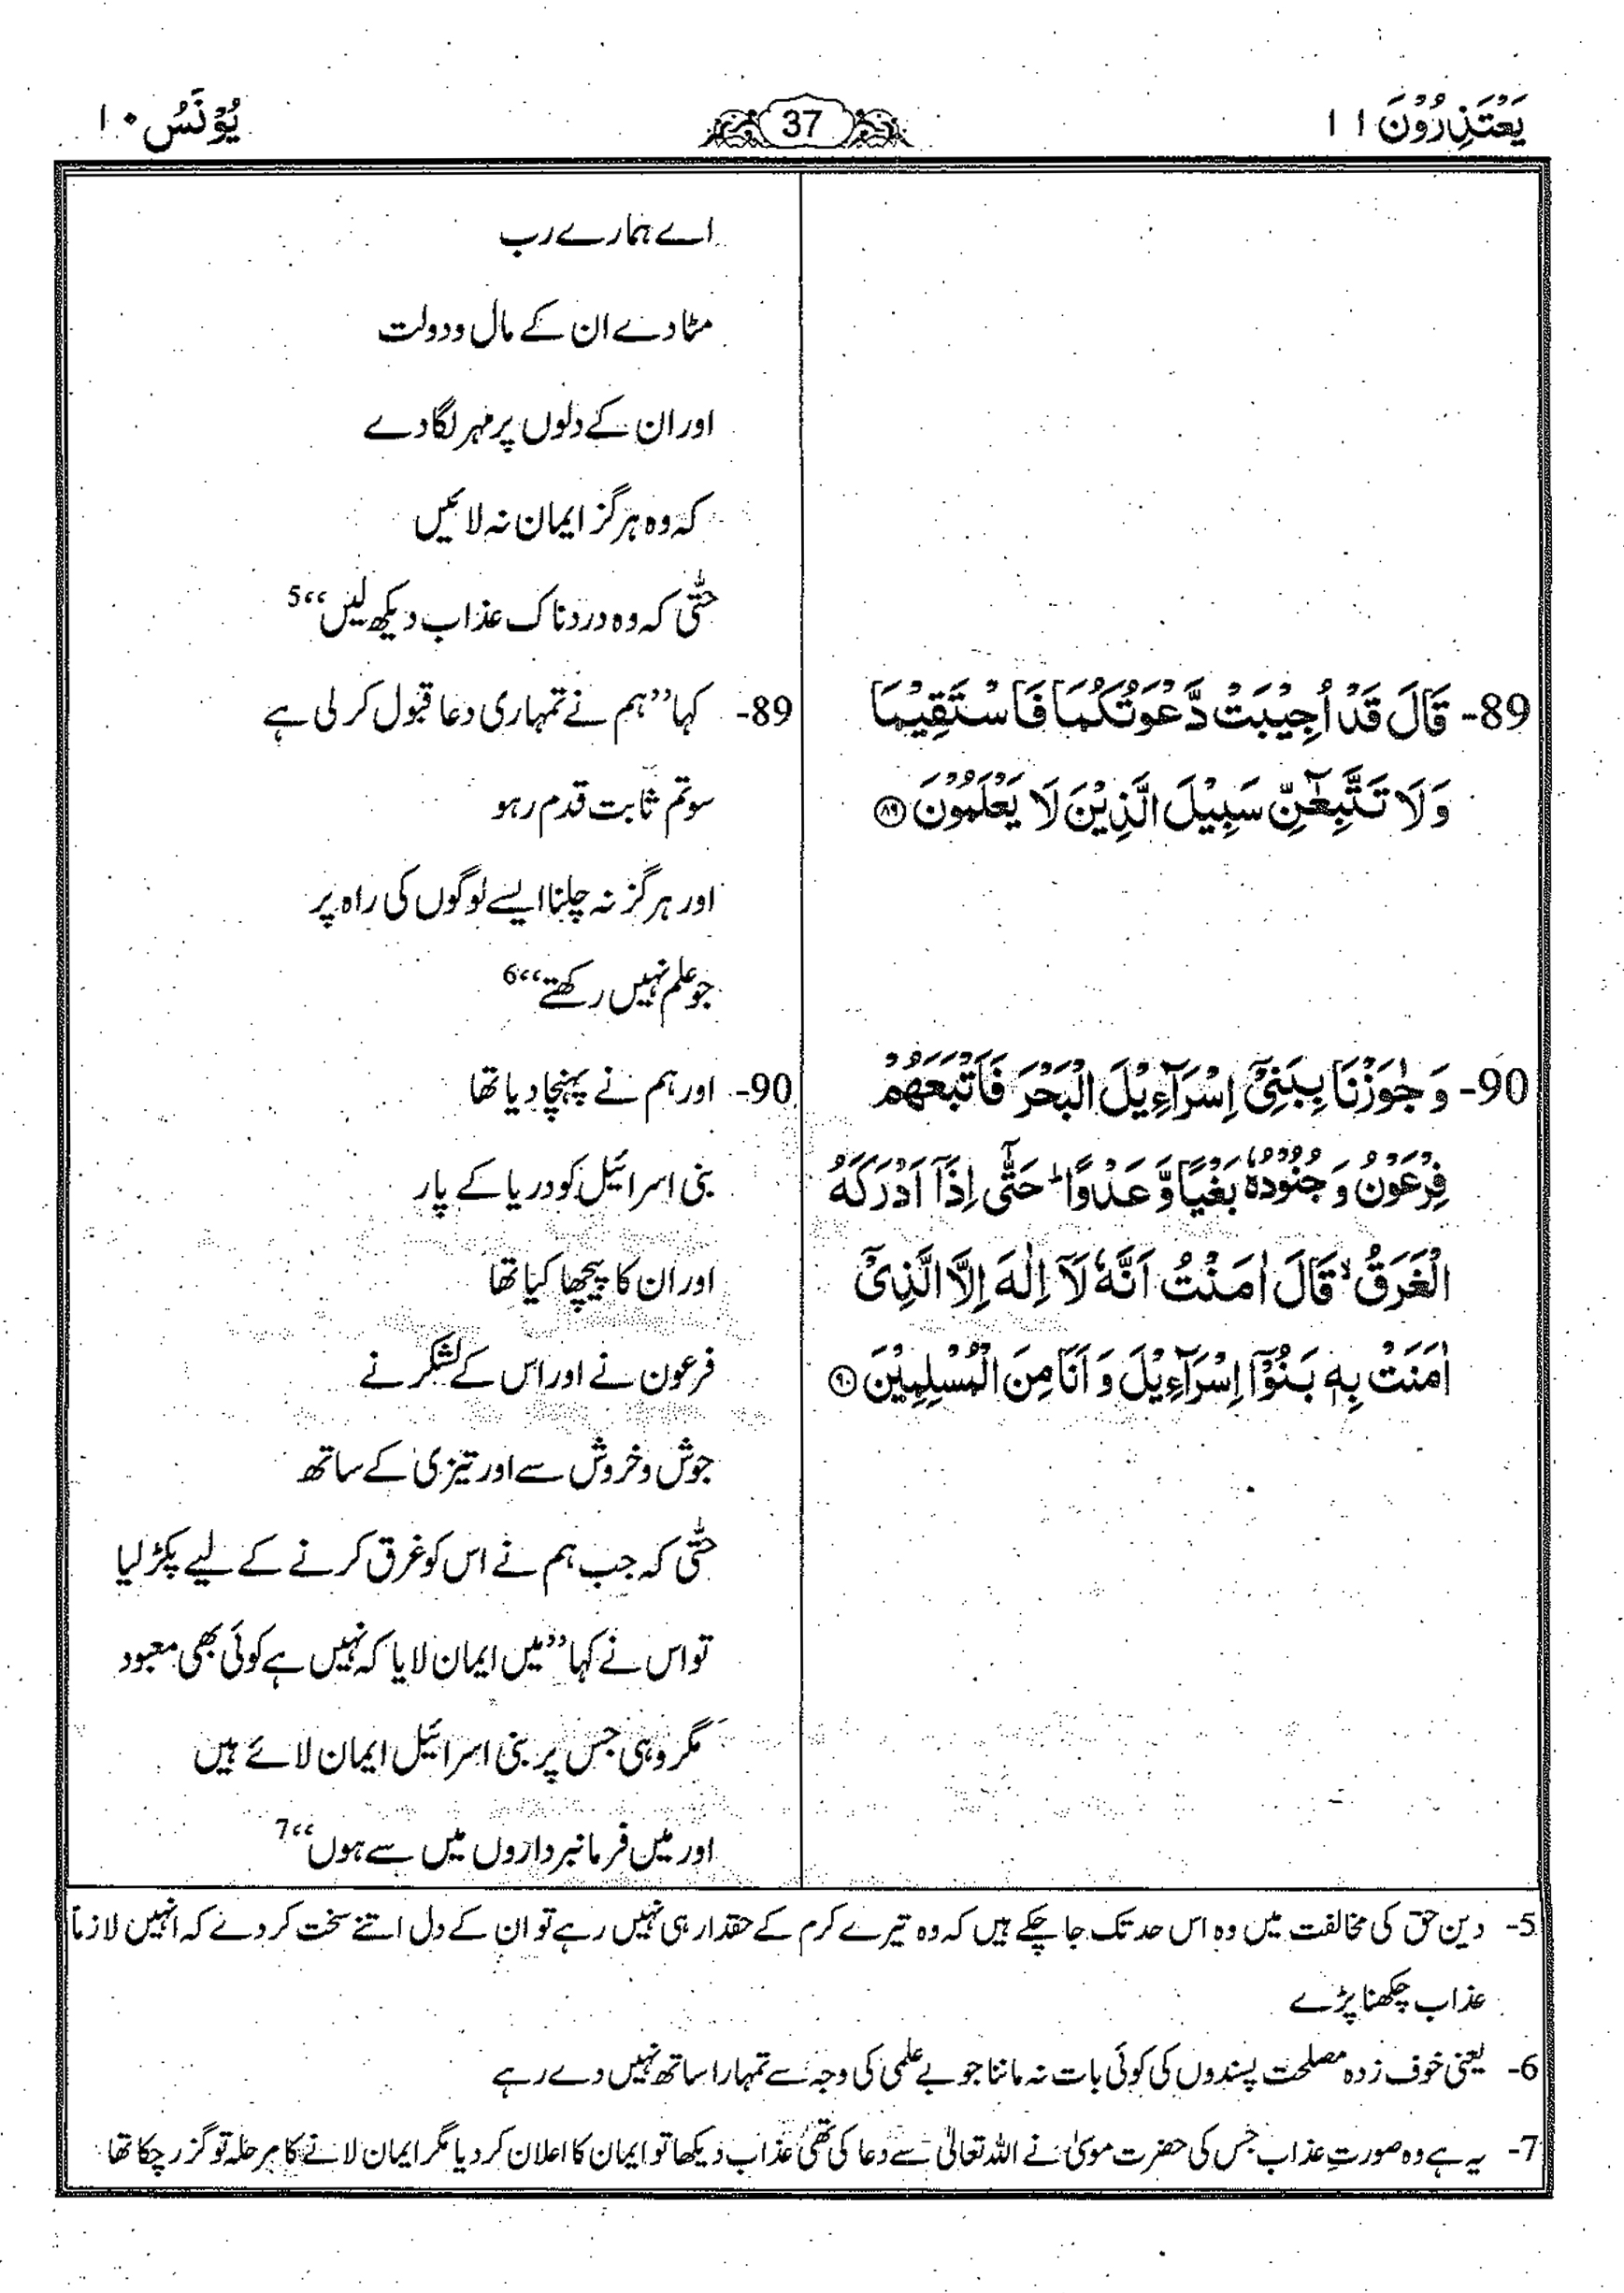 یَعْتَذِرُوْنَ ۱۱
37
یُوْنَسُ ۱۰
اے ہمارے رب
مٹادے ان کے مال ودولت
اور ان کے دلوں پر مہر لگادے
کہ وہ ہرگز ایمان نہ لائیں
حتّٰی کہ وہ دردناک عذاب دیکھ لیں‘‘5
89- قَالَ قَدْ اُجِیْبَتْ دَّعْوَتُکُمَا فَاسْتَقِیْمَا
وَلَا تَتَّبِعٰٓنِّ سَبِیْلَ الَّذِیْنَ لَا یَعْلَمُوْنَ ﴿۸۹﴾
89- کہا ’’ہم نے تمہاری دعا قبول کر لی ہے
سو تم ثابت قدم رہو
اور ہرگز نہ چلنا ایسے لوگوں کی راہ پر
جو علم نہیں رکھتے‘‘6
90- وَ جٰوَزْنَا بِبَنِیْۤ اِسْرَآءِیْلَ الْبَحْرَ فَاَتْبَعَهُمْ
فِرْعَوْنُ وَ جُنُوْدُهٗ بَغْیًا وَّ عَدْوًا ؕ حَتّٰۤی اِذَاۤ اَدْرَکَهُ
الْغَرَقُ ۙ قَالَ اٰمَنْتُ اَنَّهٗ لَاۤ اِلٰهَ اِلَّا الَّذِیْۤ
اٰمَنَتْ بِهٖ بَنُوْۤا اِسْرَآءِیْلَ وَ اَنَا مِنَ الْمُسْلِمِیْنَ ﴿۹۰﴾
90- اور ہم نے پہنچا دیا تھا
بنی اسرائیل کو دریا کے پار
اور ان کا پیچھا کیا تھا
فرعون نے اور اس کے لشکر نے
جوش وخروش سے اور تیزی کے ساتھ
حتّٰی کہ جب ہم نے اس کو غرق کرنے کے لیے پکڑ لیا
تو اس نے کہا ’’میں ایمان لایا کہ نہیں ہے کوئی بھی معبود
مگر وہی جس پر بنی اسرائیل ایمان لائے ہیں
اور میں فرمانبرداروں میں سے ہوں‘‘7
5- دین حق کی مخالفت میں وہ اس حد تک جا چکے ہیں کہ وہ تیرے کرم کے حقدار ہی نہیں رہے تو ان کے دل اتنے سخت کردے کہ انہیں لازماً
عذاب چکھنا پڑے
6- یعنی خوف زدہ مصلحت پسندوں کی کوئی بات نہ ماننا جو بے علمی کی وجہ سے تمہارا ساتھ نہیں دے رہے
7- یہ ہے وہ صورتِ عذاب جس کی حضرت موسیٰ نے اللہ تعالیٰ سے دعا کی تھی عذاب دیکھا تو ایمان کا اعلان کر دیا مگر ایمان لانے کا مرحلہ تو گزر چکا تھا